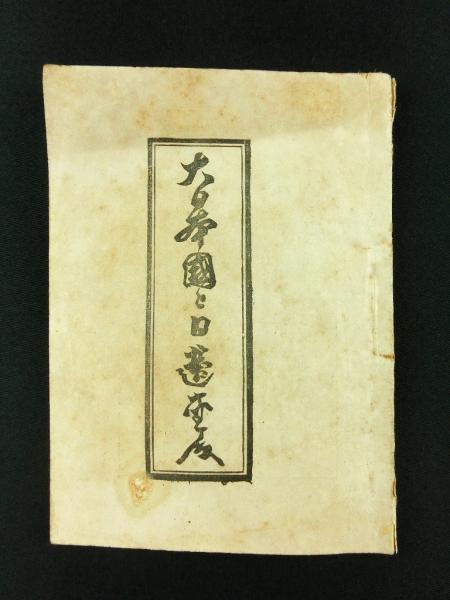 大日本國と日蓮聖人